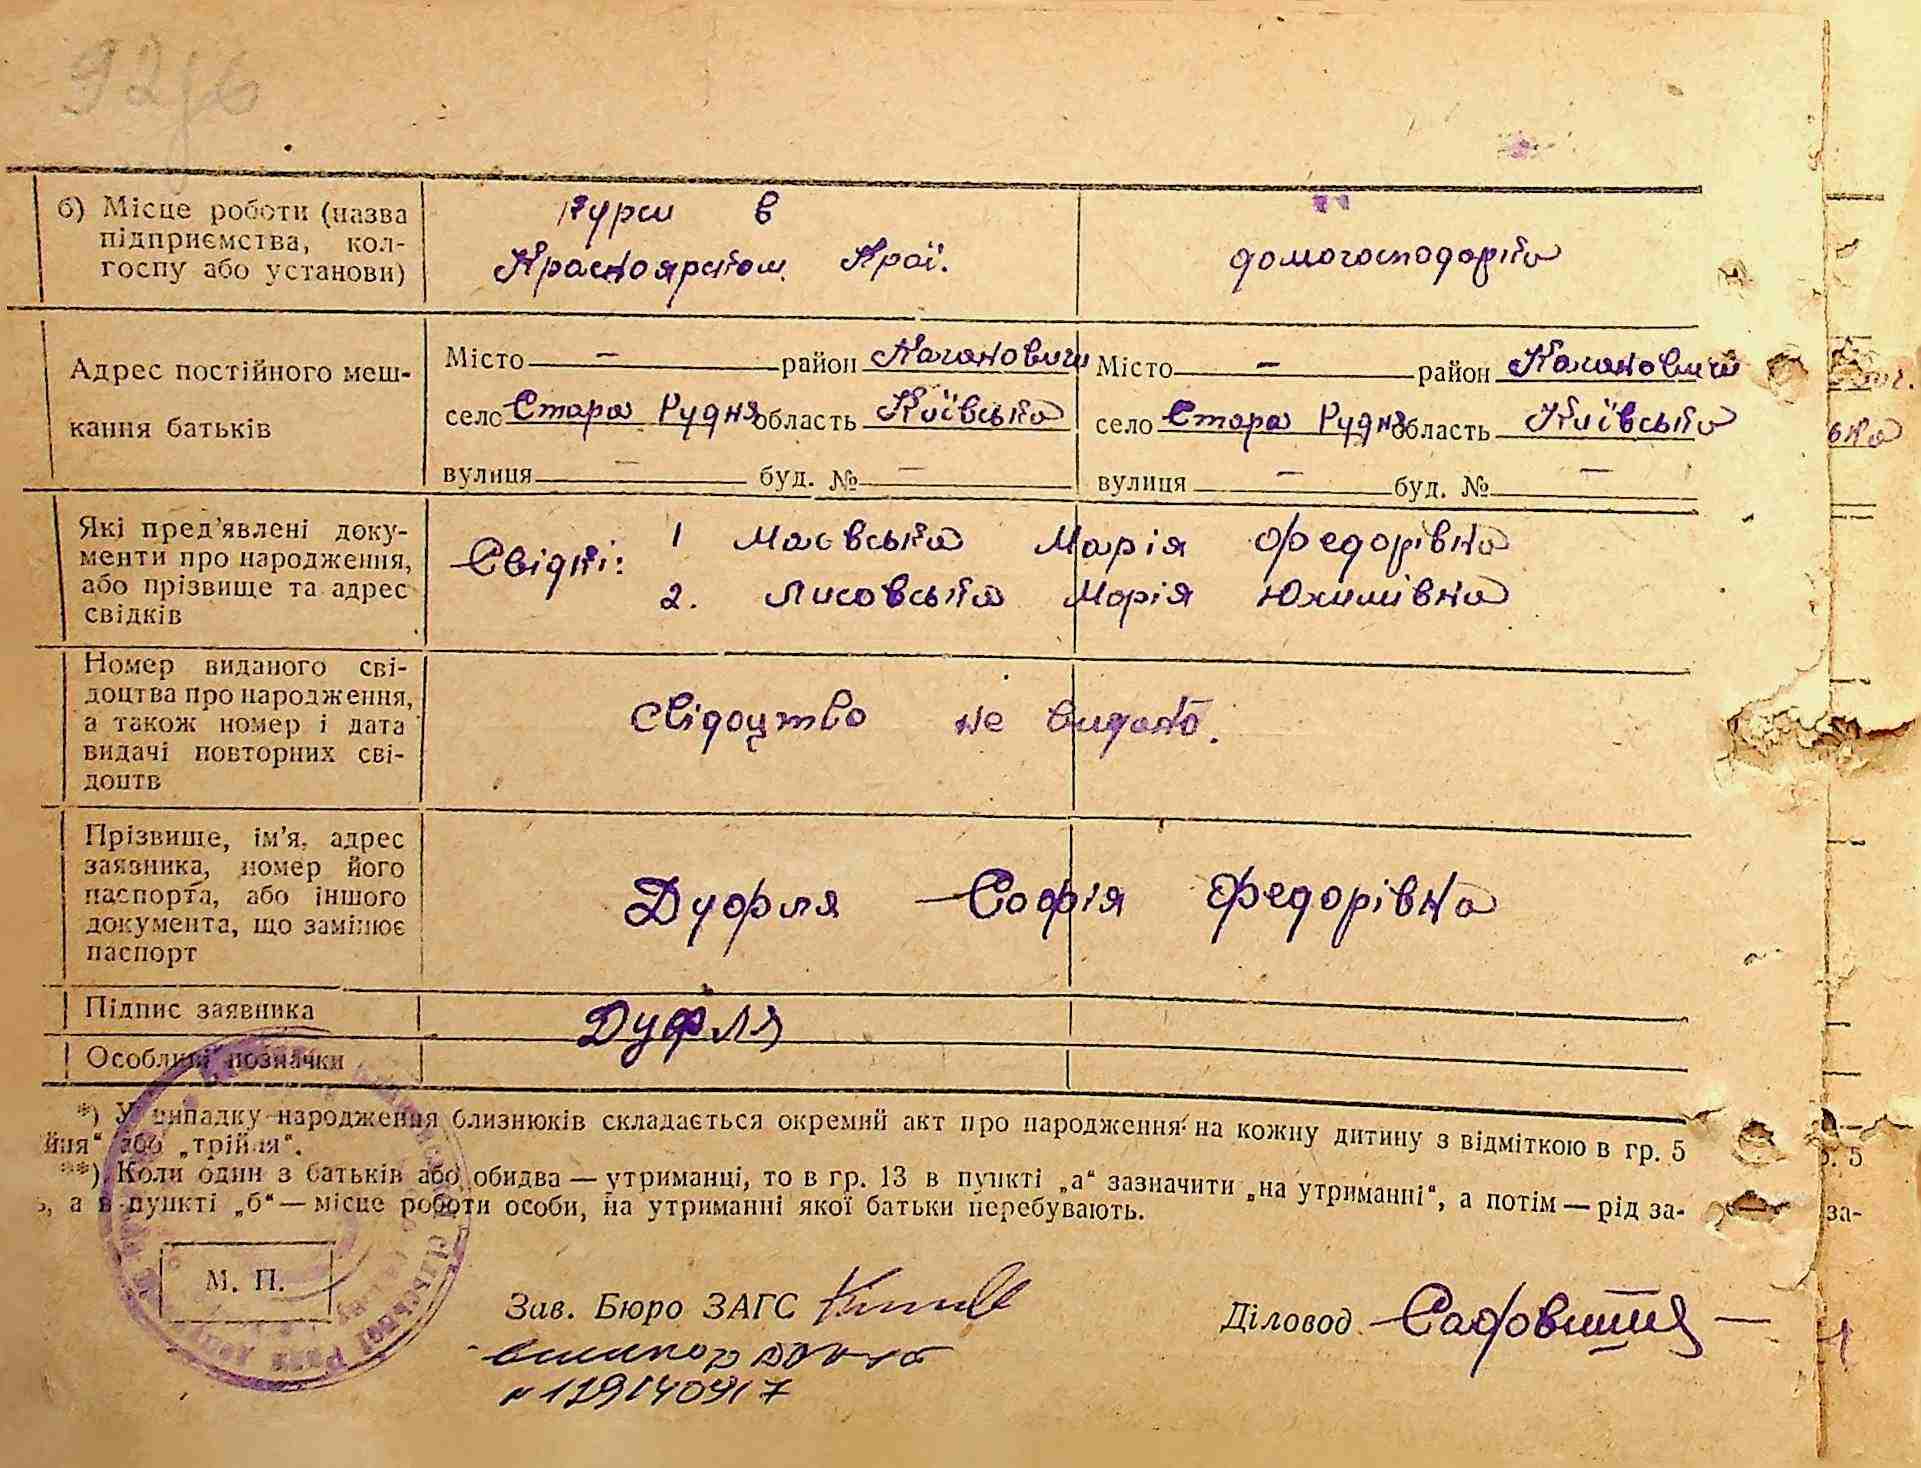 92
б) Місце роботи (назва
підприємства, кол-
госпу або установи)
Курси в
Красноярськом Краї.
домогосподарка
Адрес постійного меш-
кання батьків
Місто — район Кагановичи
село Стара Рудня область Київська
вулиця — буд. № —
Місто — район Кагановичи
село Стара Рудня область Київська
вулиця — буд. № —
Які пред'явлені доку-
менти про народження,
або прізвище та адрес
свідків
Свідкі: 1 Маєвська Марія Федорівна
2. Лисовська Марія Юхимівна
Номер виданого сві-
доцтва про народження,
а також номер і дата
видачі повторних сві-
доцтв
Свідоцтво не видано.
Прізвище, ім'я, адрес
заявника, номер його
паспорта, або іншого
документа, що замінює
паспорт
Дуфля Софія Федорівна
Підпис заявника
Дуфля
Особливі позначки
*) У випадку народження близнюків складається окремий акт про народження на кожну дитину з відміткою в гр. 5
йня" або „трійня".
**) Коли один з батьків або обидва — утриманці, то в гр. 13 в пункті „а" зазначити „на утриманні", а потім — рід за-
, а в пункті „б" — місце роботи особи, на утриманні якої батьки перебувають.
М. П.
Зав. Бюро ЗАГС
Діловод